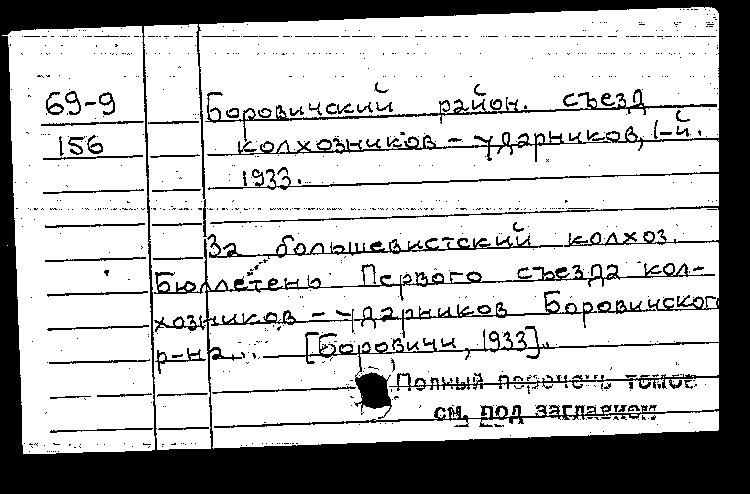 69-9 Боровичский район. съезд
156 колхозников - ударников, 1-й.
1933.
За большевистский колхоз.
Бюллетень Первого съезда кол-
хозников - ударников Боровичского
р-на... [Боровичи, 1933].
Полный перечень томов
см. под заглавием